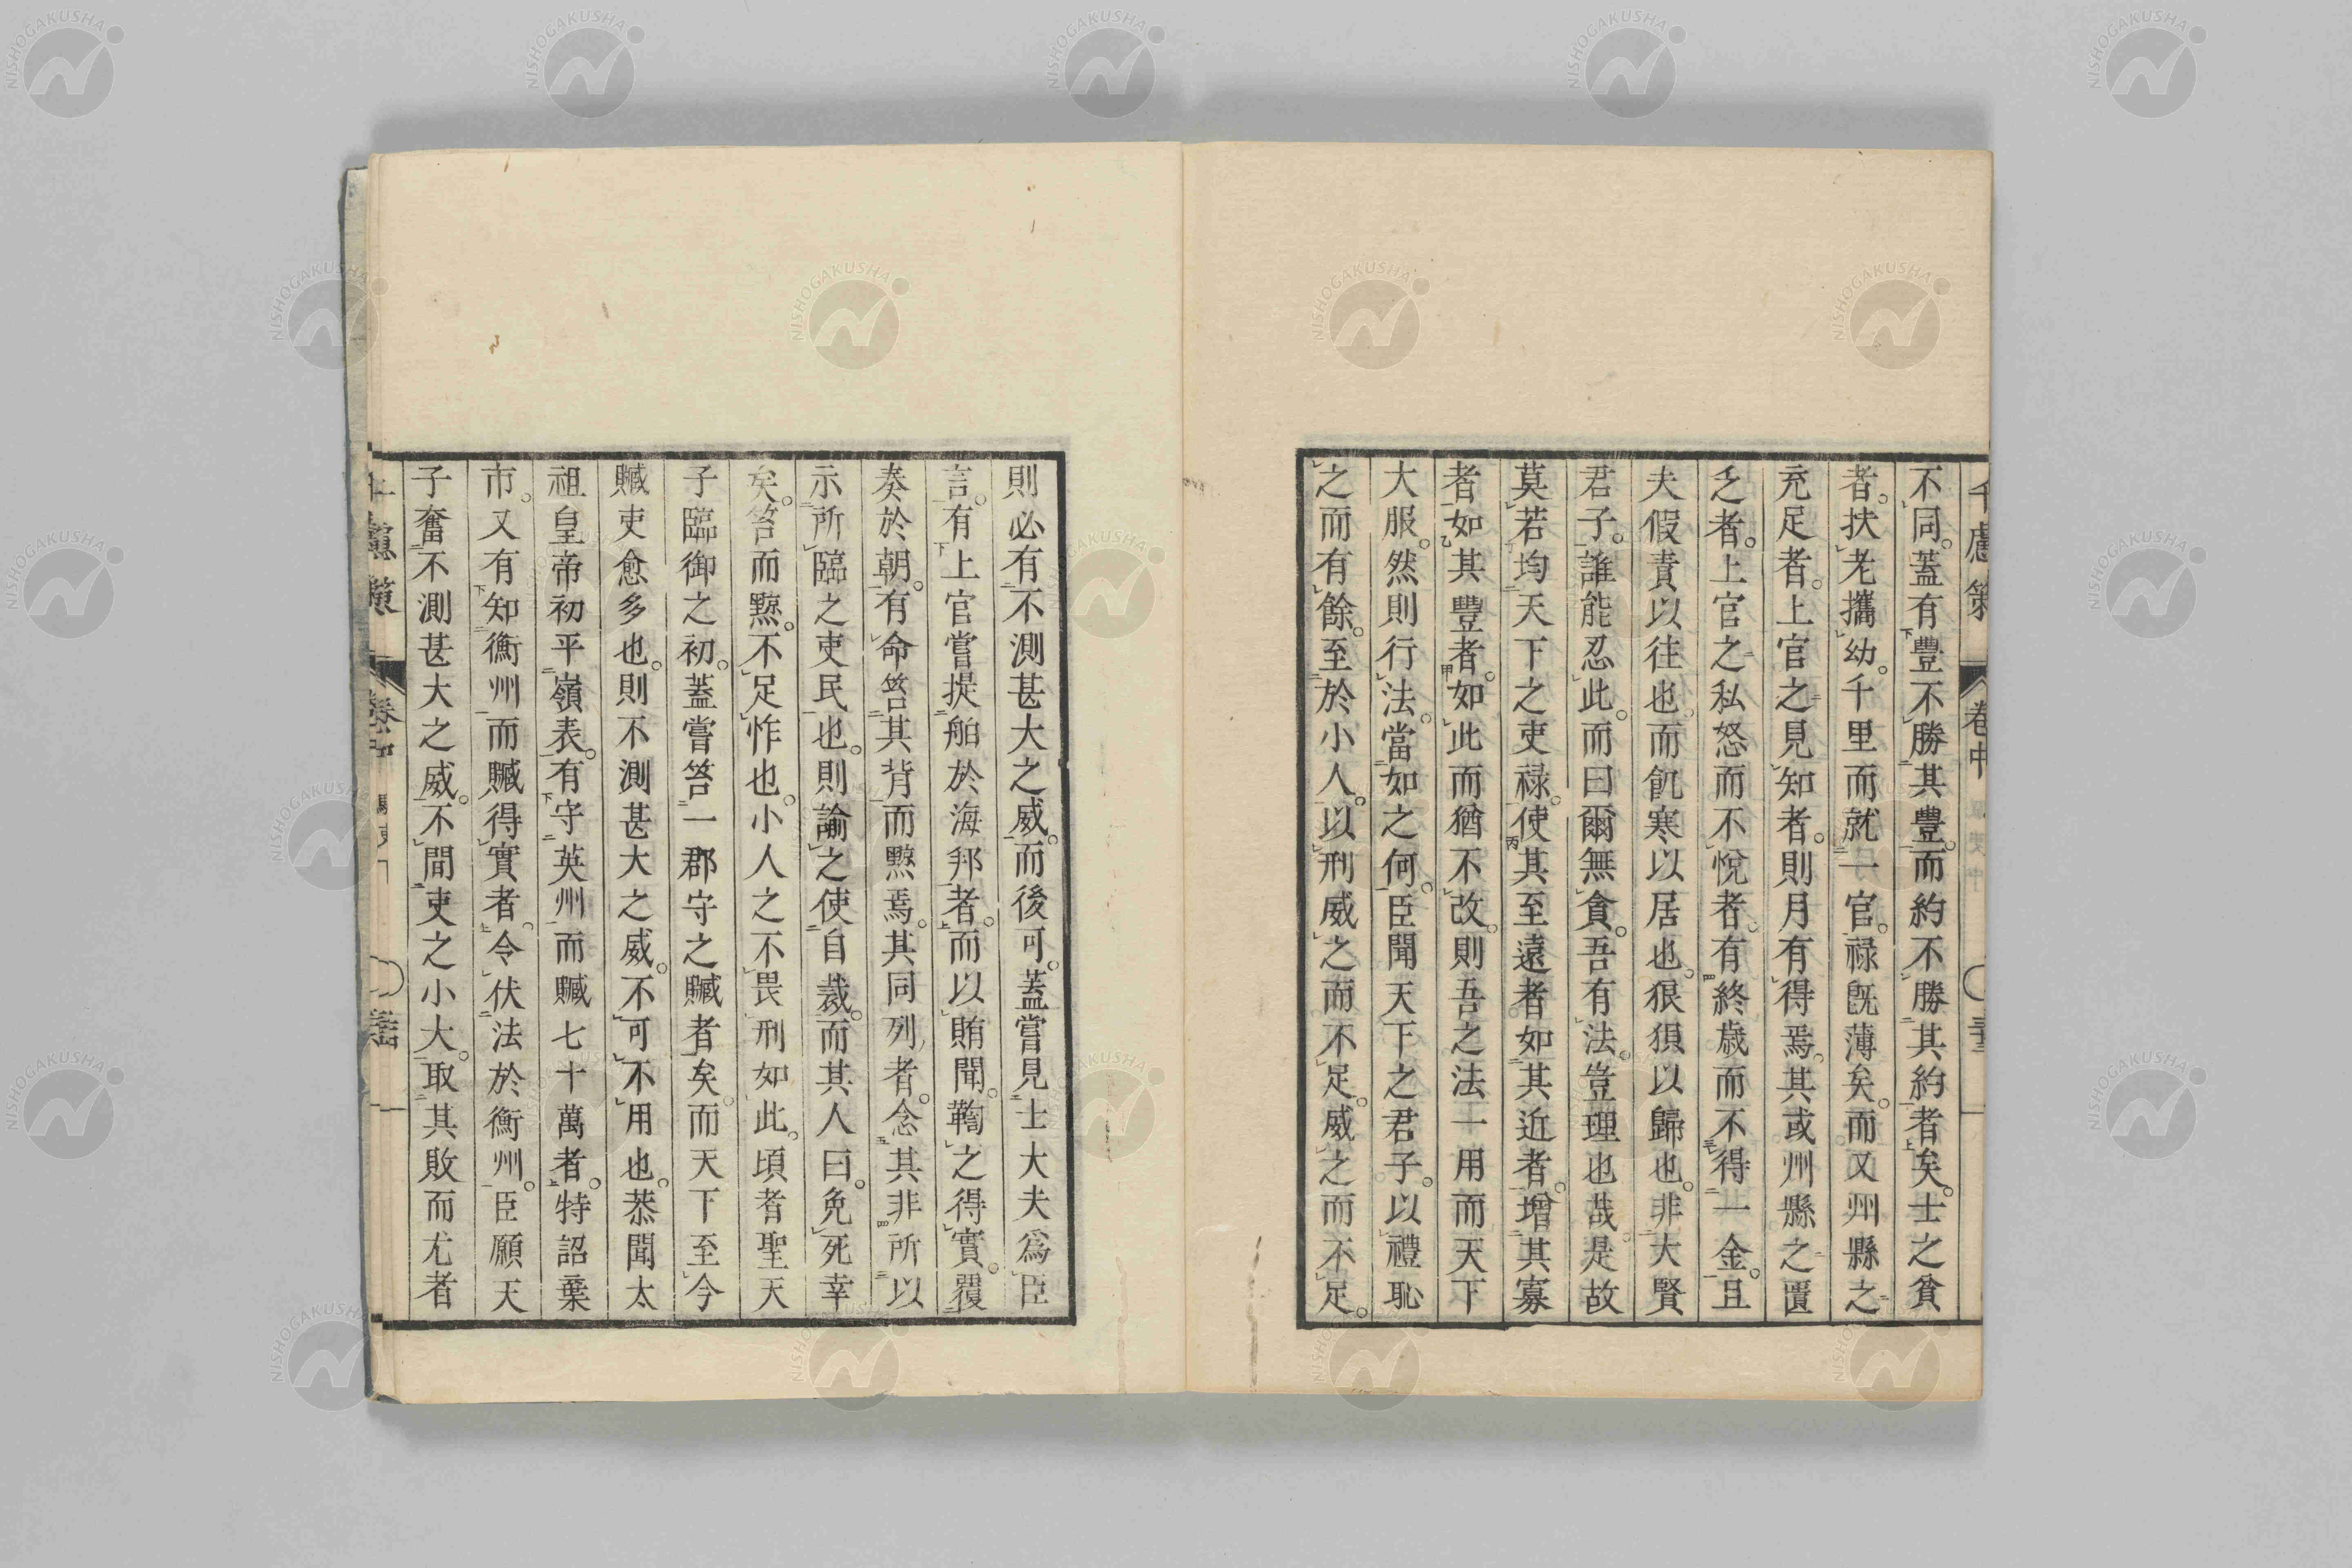 千慮策 卷中
不同。蓋有豐不勝其豐。而約不勝其約者矣。士之貧
者。扶老攜幼。千里而就一官。禄既薄矣。而又州縣之
充足者。上官之見知者。則月有得焉。其或州縣之匱
乏者。上官之私怒而不悅者。有終歳而不得一金。且
夫假責以往也。而飢寒以居也。狼狽以歸也。非大賢
君子。誰能忍此。而曰爾無貪。吾有法。豈理也哉。是故
莫若均天下之吏禄。使其至遠者如其近者。增其寡
者如其豐者。如此而猶不改。則吾之法一用而天下
大服。然則行法。當如之何。臣聞天下之君子。以禮恥
之而有餘。至於小人。以刑威之而不足。威之而不足。
則必有不測甚大之威。而後可。蓋嘗見士大夫爲臣
言。有上官嘗提舶於海邦者。而以賄聞。鞫之得實。覆
奏於朝。有命笞其背而黥焉。其同列者。念其非所以
示所臨之吏民也。則諭之使自裁。而其人曰。免死幸
矣。笞而黥。不足怍也。小人之不畏刑如此。頃者聖天
子臨御之初。蓋嘗笞一郡守之贓者矣。而天下至今
贓吏愈多也。則不測甚大之威。不可不用也。恭聞太
祖皇帝初平嶺表。有守英州而贓七十萬者。特詔棄
市。又有知衡州而贓得實者。令伏法於衡州。臣願天
子奮不測甚大之威。不間吏之小大。取其敗而尤者
千慮策 卷中
NISHOGAKUSHA